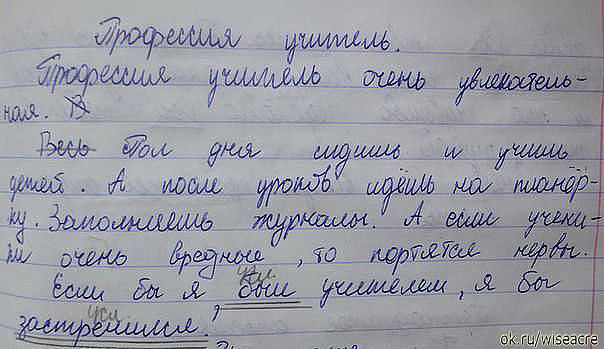 Профессия учитель.
Профессия учитель очень увлекатель-
ная. В
Весь Пол дня сидишь и учишь
детей. А после уроков идёшь на планёр-
ку. Заполняешь журналы. А если учени-
ки очень вредные, то портятся нервы.
усл.
Если бы я был учителем, я бы
усл
застрелился.
ok.ru/wiseacre